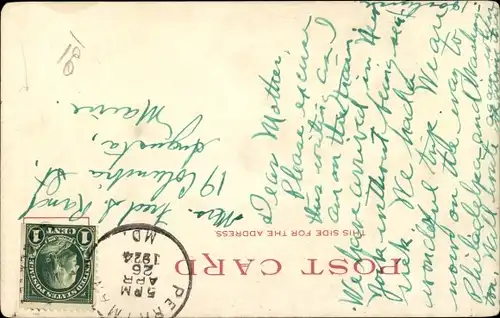 189
POST CARD
THIS SIDE FOR THE ADDRESS.
Dear Mother,
Please excuse
this writing as I
am on the train.
We have arrived in New
York without being sea
sick. We had a
wonderful trip. We are
now on the way to
Philadelphia and Washing-
Mrs. Fred S.
19 Columbia St.
Augusta,
Maine.
MD.
APR
26
5 PM
1924
UNITED STATES POSTAGE
1 CENT 1